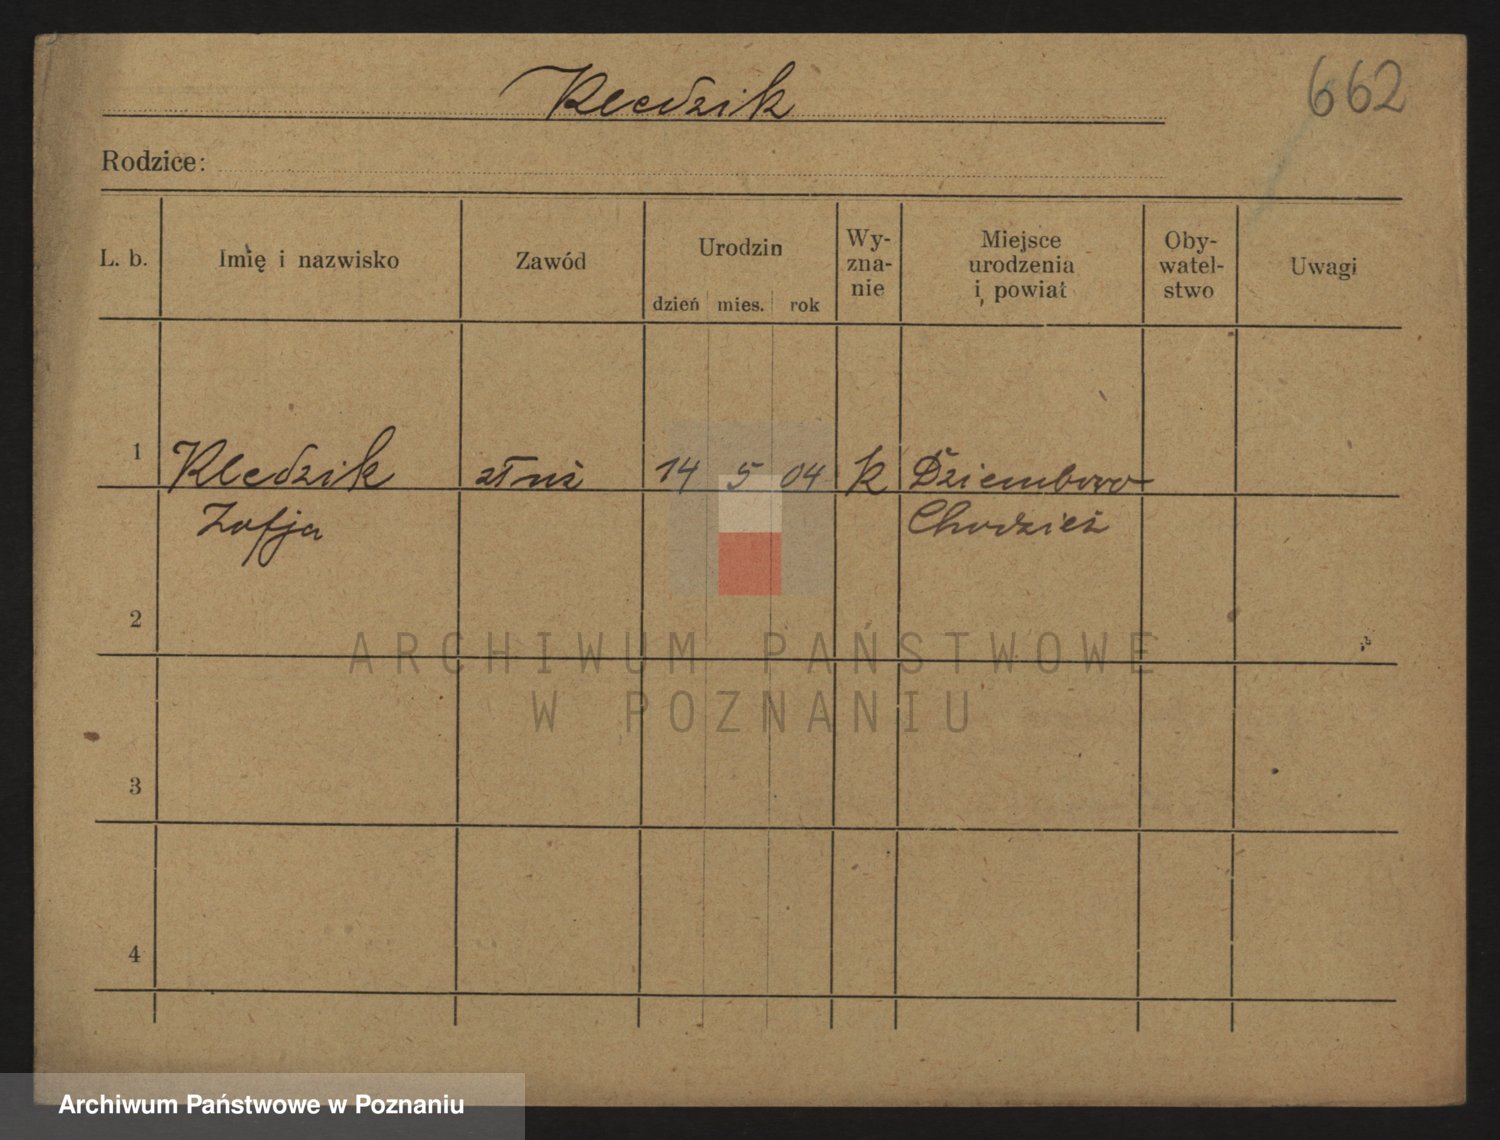 Kledzik
662
Rodzice:
L. b. Imię i nazwisko Zawód Urodzin dzień mies. rok Wy-zna-nie Miejsce urodzenia i powiat Oby-watel-stwo Uwagi
1 Kledzik 14 5 04 k Dziemborowo
Zofja Chodzież
2
3
4
ARCHIWUM PAŃSTWOWE
W POZNANIU
Archiwum Państwowe w Poznaniu